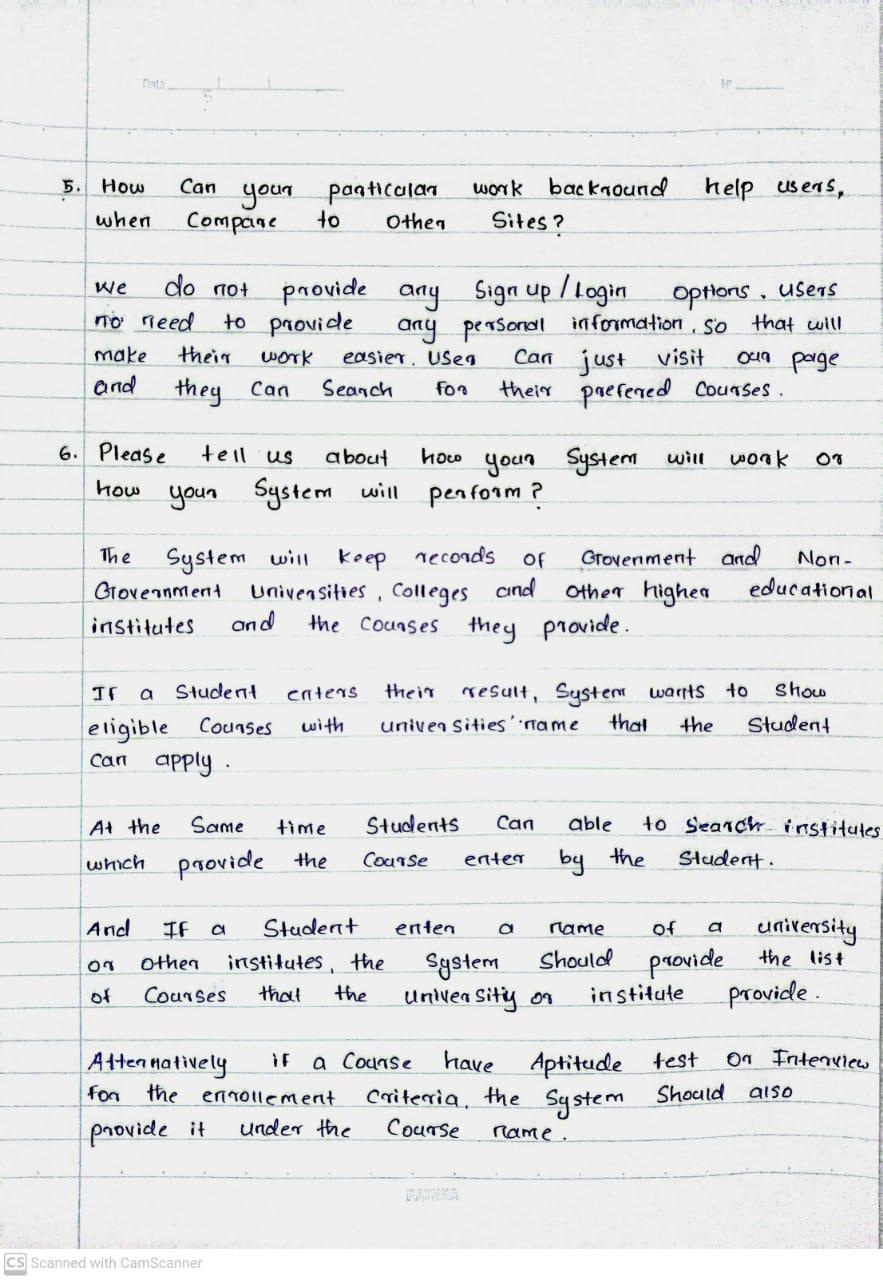 Date
Nº
5. How Can your particular work backround help users,
when Compare to Other Sites?
We do not provide any Sign up / Login options. users
no need to provide any personal information, so that will
make their work easier. User Can just visit our page
and they Can Search for their prefered Courses.
6. Please tell us about how your System will work or
how your System will perform?
The System will keep records of Grovenment and Non-
Government Universities, Colleges and other higher educational
institutes and the Courses they provide.
If a Student enters their result, System wants to show
eligible Courses with universities' name that the Student
Can apply.
At the Same time Students Can able to Search institutes
which provide the Course enter by the Student.
And If a Student enter a name of a university
or other institutes, the System Should provide the list
of Courses that the university or institute provide.
Alternatively if a Course have Aptitude test or Interview
for the enrollement Criteria, the System Should also
provide it under the Course name.
RATHNA
CS Scanned with CamScanner